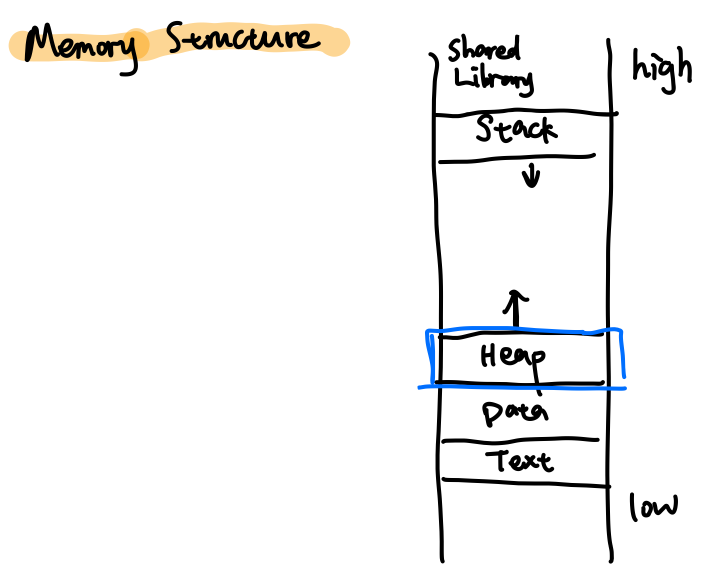 Memory Structure
Shared
Library
high
Stack
Heap
Data
Text
low